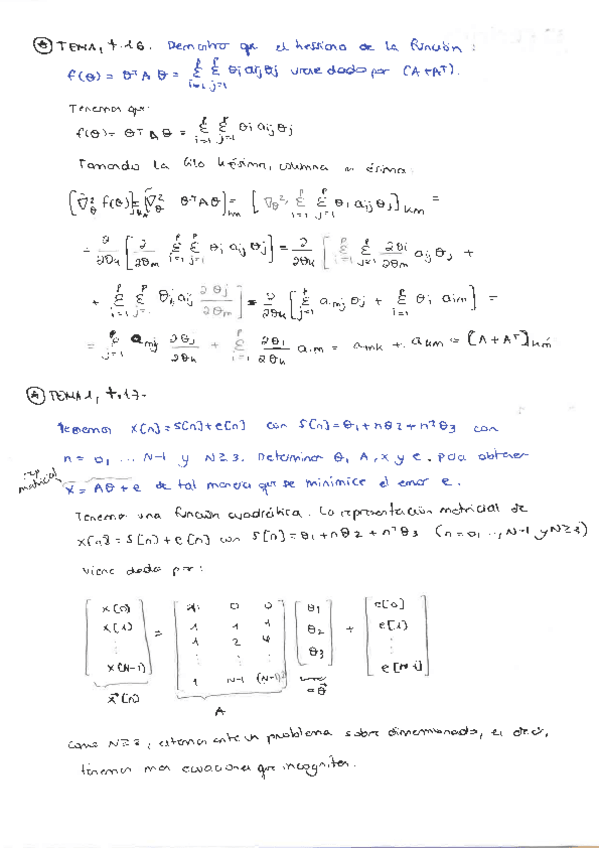 TEMA 1, t.16. Demostrar que el hessiano de la función:
f(θ) = θᵀ A θ = Σ_{i=1}^{p} Σ_{j=1}^{p} θi aij θj viene dado por (A+Aᵀ).
Tenemos que:
f(θ) = θᵀ A θ = Σ_{i=1}^{p} Σ_{j=1}^{p} θi aij θj
Tomando la fila k ésima, columna m ésima:
[∇²_θ f(θ)]_{km} = [∇²_θ θᵀAθ]_{km} = [∇_θ² Σ_{i=1}^{p} Σ_{j=1}^{p} θi aij θj]_{km} =
= ∂/∂θk [∂/∂θm Σ_{i=1}^{p} Σ_{j=1}^{p} θi aij θj] = ∂/∂θk [Σ_{i=1}^{p} Σ_{j=1}^{p} ∂θi/∂θm aij θj +
+ Σ_{i=1}^{p} Σ_{j=1}^{p} θi aij ∂θj/∂θm] = ∂/∂θk [Σ_{j=1}^{p} amj θj + Σ_{i=1}^{p} θi aim] =
= Σ_{j=1}^{p} amj ∂θj/∂θk + Σ_{i=1}^{p} ∂θi/∂θk aim = amk + akm = [A+Aᵀ]km
TEMA 1, t.17.-
Tenemos x[n]=s[n]+e[n] con s[n]=θ1+nθ2+n²θ3 con
n = 0, ... N-1 y N≥3. Determinar θ, A, x y e. para obtener
rep matricial
x = Aθ + e de tal manera que se minimice el error e.
Tenemos una función cuadrática. La representación matricial de
x[n] = s[n]+e[n] con s[n]=θ1+nθ2+n²θ3 (n=0,..,N-1 y N≥3)
viene dada por:
[x(0) x(1) ⋮ x(N-1)] = [1 0 0; 1 1 1; 1 2 4; ⋮ ⋮ ⋮; 1 N-1 (N-1)²] [θ1 θ2 θ3] + [e[0] e[1] ⋮ e[N-1]]
x[n]
= θ
A
Como N≥3, estamos ante un problema sobre dimensionado, es decir,
tenemos mas ecuaciones que incognitas.